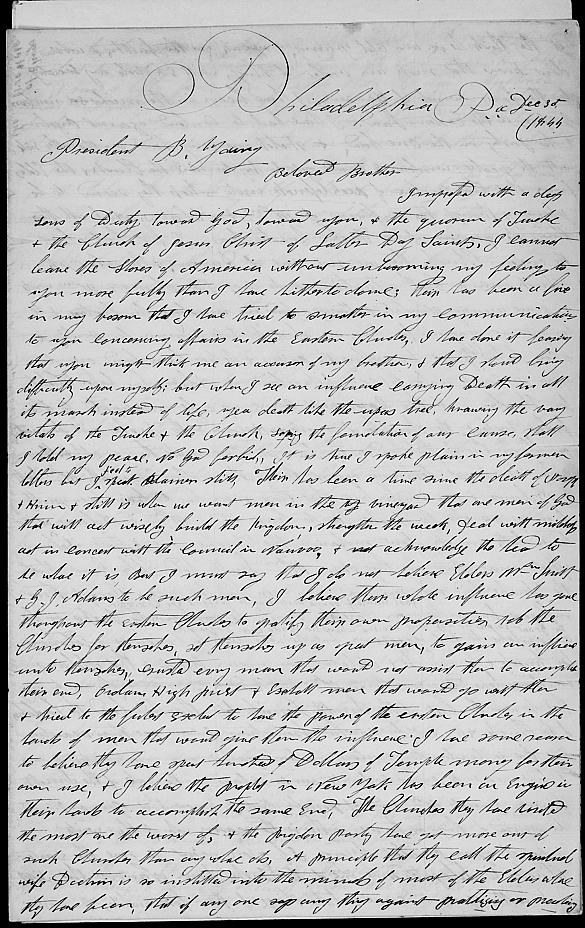 Philadelphia Pa Dec 3
1844
President B. Young
Beloved Brother
Impress'd with a deep
sens of Duty toward God, toward you, & the quorum of Twelve
& the Church of Jesus Christ of Latter Day Saints, I cannot
leave the Shores of America without unbosoming my feelings to
you more fully than I have hitherto done; their has been a fire
in my bosom that I have tried to smother in my communications
to you concerning affairs in the Eastern Churches, I have done it fearing
that you might think me an accuser of my brethren, & that I should bring
difficulty upon myself; but when I see an influence carrying Death in all
its march instead of life, yea death like the upas tree, knawing the very
vitals of the Twelve & the Church, saping the foundation of our cause, shall
I hold my peace. No God forbid, It is true I spoke plain in my former
letters but I feel to speak plainer still, Their has been a time since the death of Joseph
& Hiram & still is when we want men in the vineyard that are men of God
that will act wisely build the Kingdom, strengthen the weak, deal with mildness
act in concert with the Council in Nauvoo, & acknowledge the head to
be whare it is But I must say that I do not believe Elders Wm Smith
& G. J. Adams to be such men, I believe their whole influence has gone
throughout the eastern Churches to gratify their own propensities, rob the
Churches for themselves, set themselves up as great men, to gain an influence
unto themselves, crush evry man that would not assist them to accomplish
their end, Ordain High priest & Exhalt men that would go with them
& tried to the fulest extent to have the power of the eastern Churches in the
hands of men that would give them the influence. I have some reason
to believe they have spent hundreds of Dollars of Temple money for their
own use, & I believe the prophet in New York has been an Engine in
their hands to accomplish the same End, The Churches they have visited
the most are the worst of, & the Rigdon Party have got more out of
such Churches than any whare els, A principle that they call the spiritual
wife Doctrin is so instilled into the minds of most of the Elders whare
they have been, that if any one says any thing against practizing or preaching